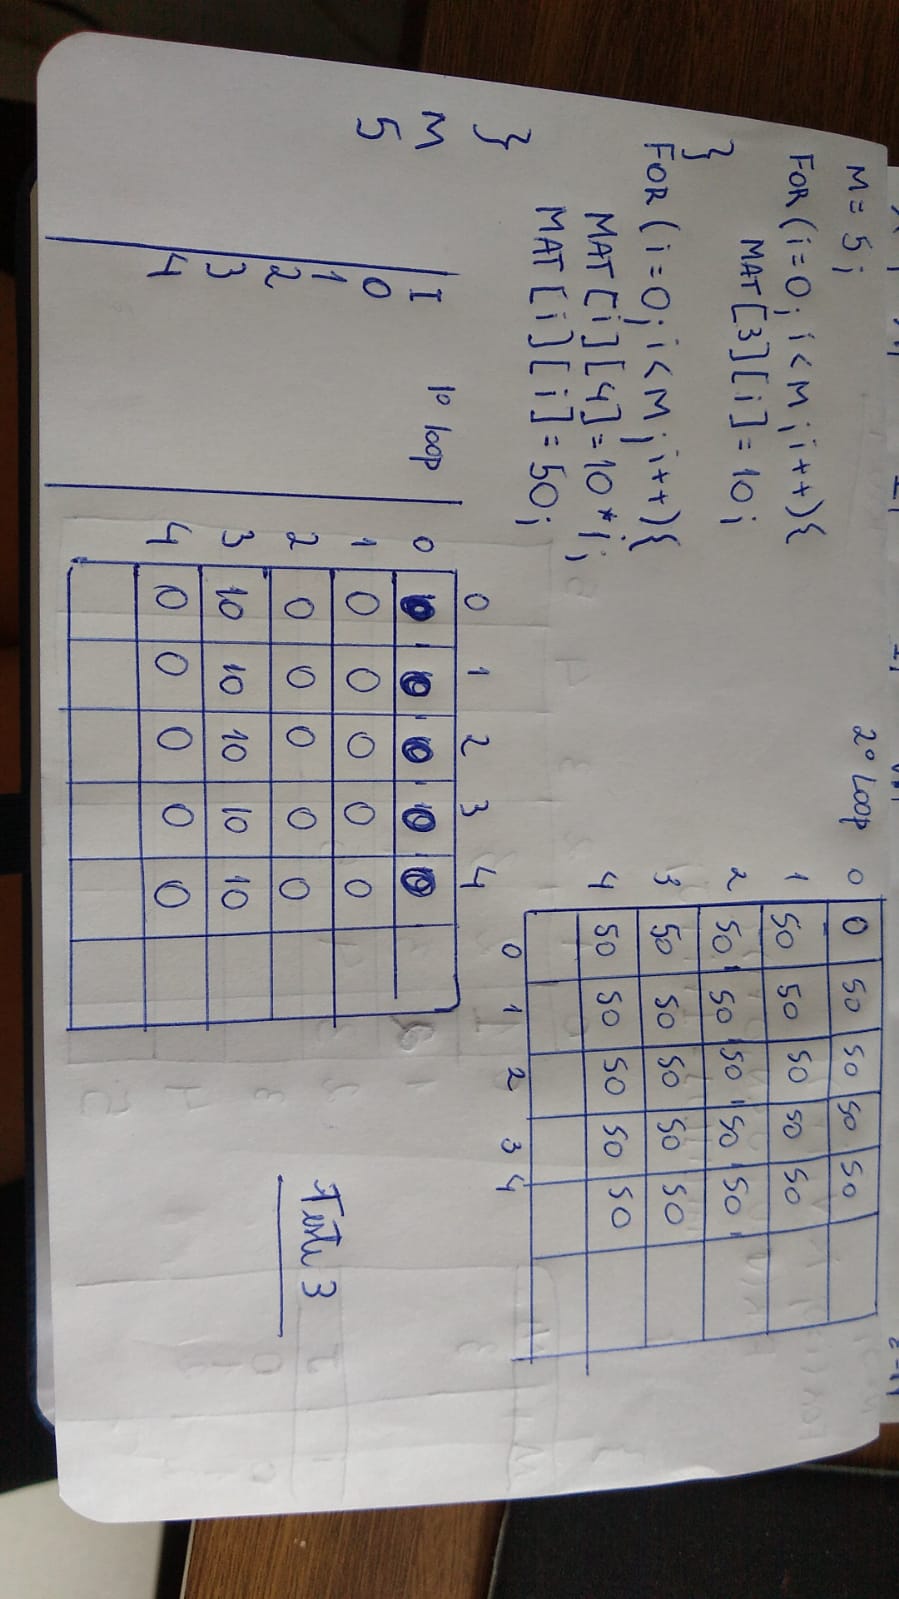 M = 5;
FOR (i=0; i<M; i++){
MAT[3][i] = 10;
}
FOR (i=0; i<M; i++){
MAT[i][4] = 10*i;
MAT[i][i] = 50;
}
M I 1º loop
5 0
1
2
3
4
0 1 2 3 4
0 10 10 10 10 10
1 0 0 0 0 0
2 0 0 0 0 0
3 10 10 10 10 10
4 0 0 0 0 0
2º Loop
0 0 50 50 50 50
1 50 50 50 50 50
2 50 50 50 50 50
3 50 50 50 50 50
4 50 50 50 50 50
0 1 2 3 4
Teste 3